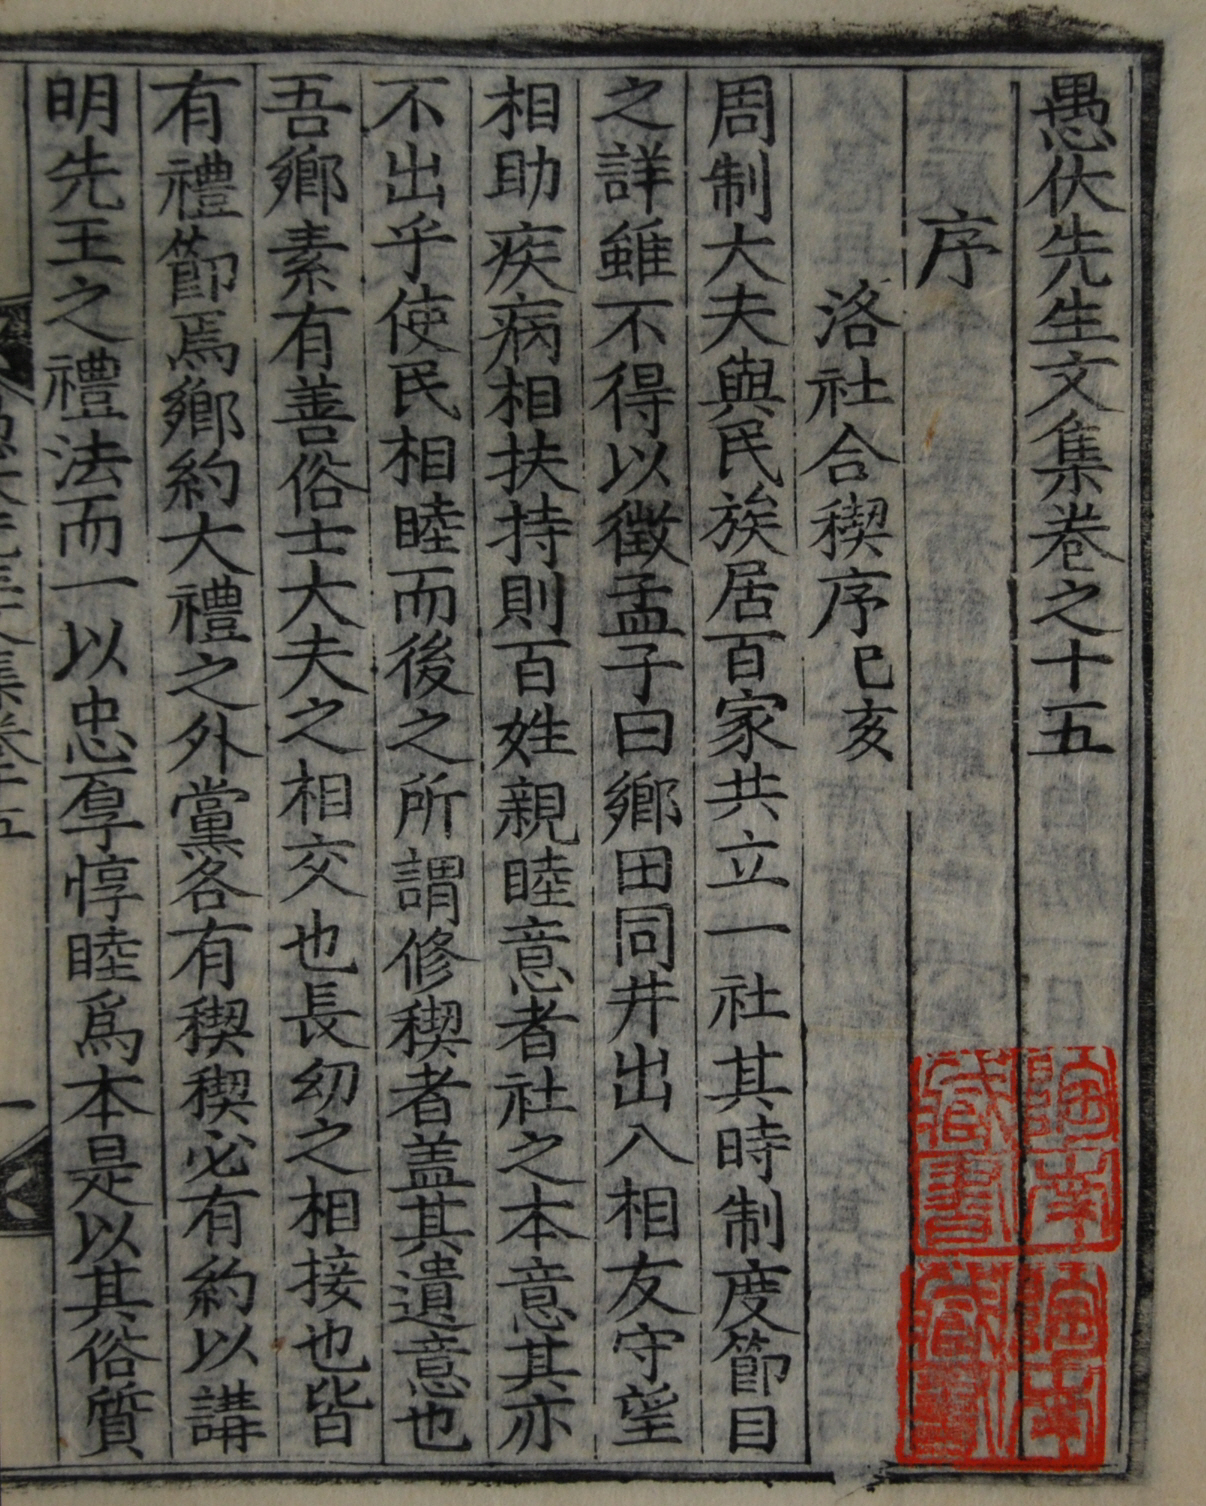 愚伏先生文集卷之十五
序
洛社合稧序己亥
周制大夫與民族居百家共立一社其時制度節目
之詳雖不得以徵孟子曰鄉田同井出入相友守望
相助疾病相扶持則百姓親睦意者社之本意其亦
不出乎使民相睦而後之所謂修稧者盖其遺意也
吾鄉素有善俗士大夫之相交也長幼之相接也皆
有禮節焉鄉約大禮之外黨各有稧稧必有約以講
明先王之禮法而一以忠厚惇睦爲本是以其俗質
愚伏先生文集卷十五
一